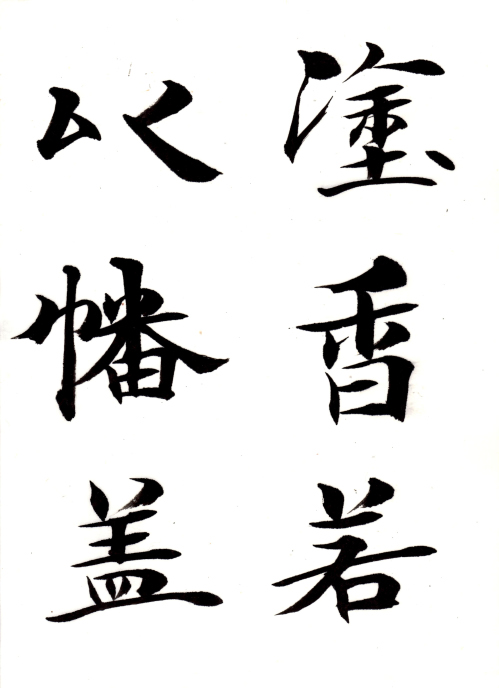 塗香若
以幡盖